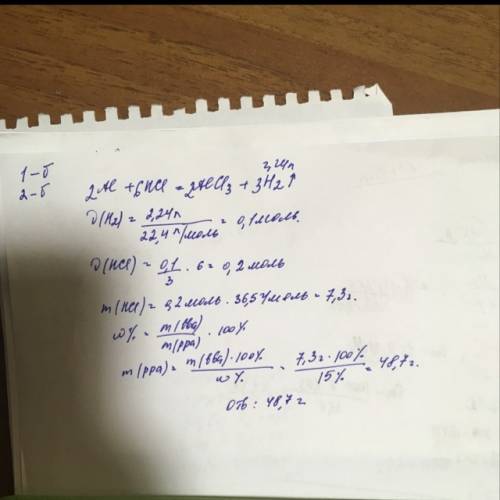 1-б
2-б
2,24л
2Al + 6HCl = 2AlCl₃ + 3H₂↑
υ(H₂) = 2,24л / 22,4 л/моль = 0,1 моль.
υ(HCl) = 0,1 / 3 · 6 = 0,2 моль
m(HCl) = 0,2 моль · 36,5 г/моль = 7,3 г.
w% = m(вва) / m(рра) · 100%
m(рра) = m(вва) · 100% / w% = 7,3 г · 100% / 15% = 48,7 г.
Отв: 48,7 г.